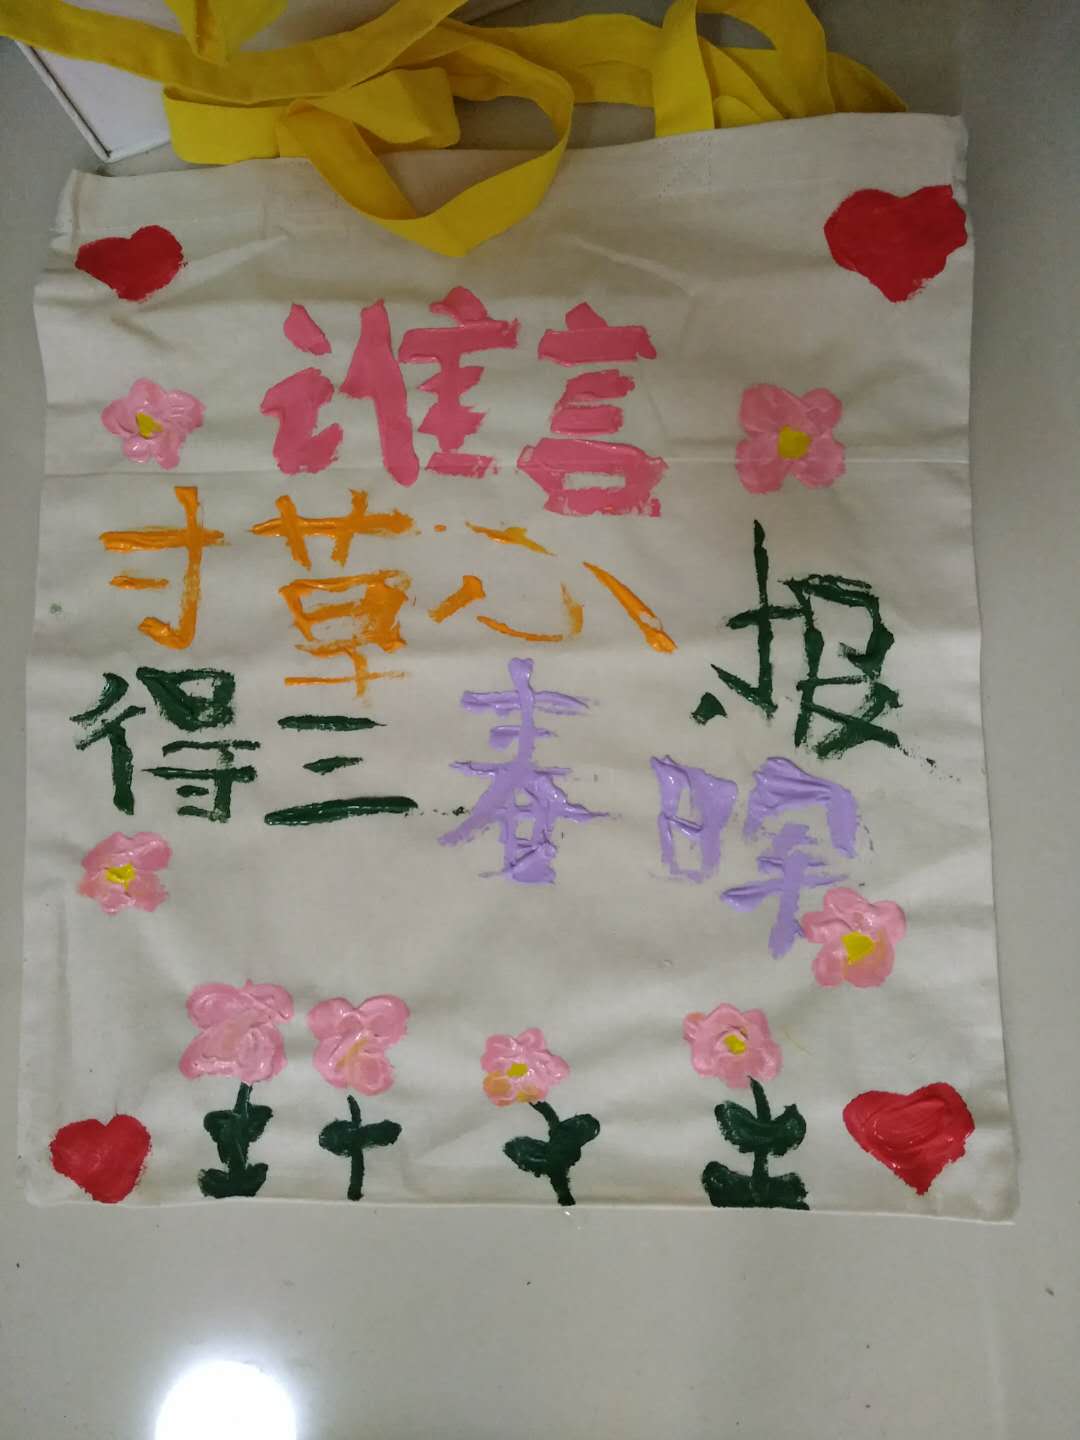 谁言
寸草心报
得三春晖